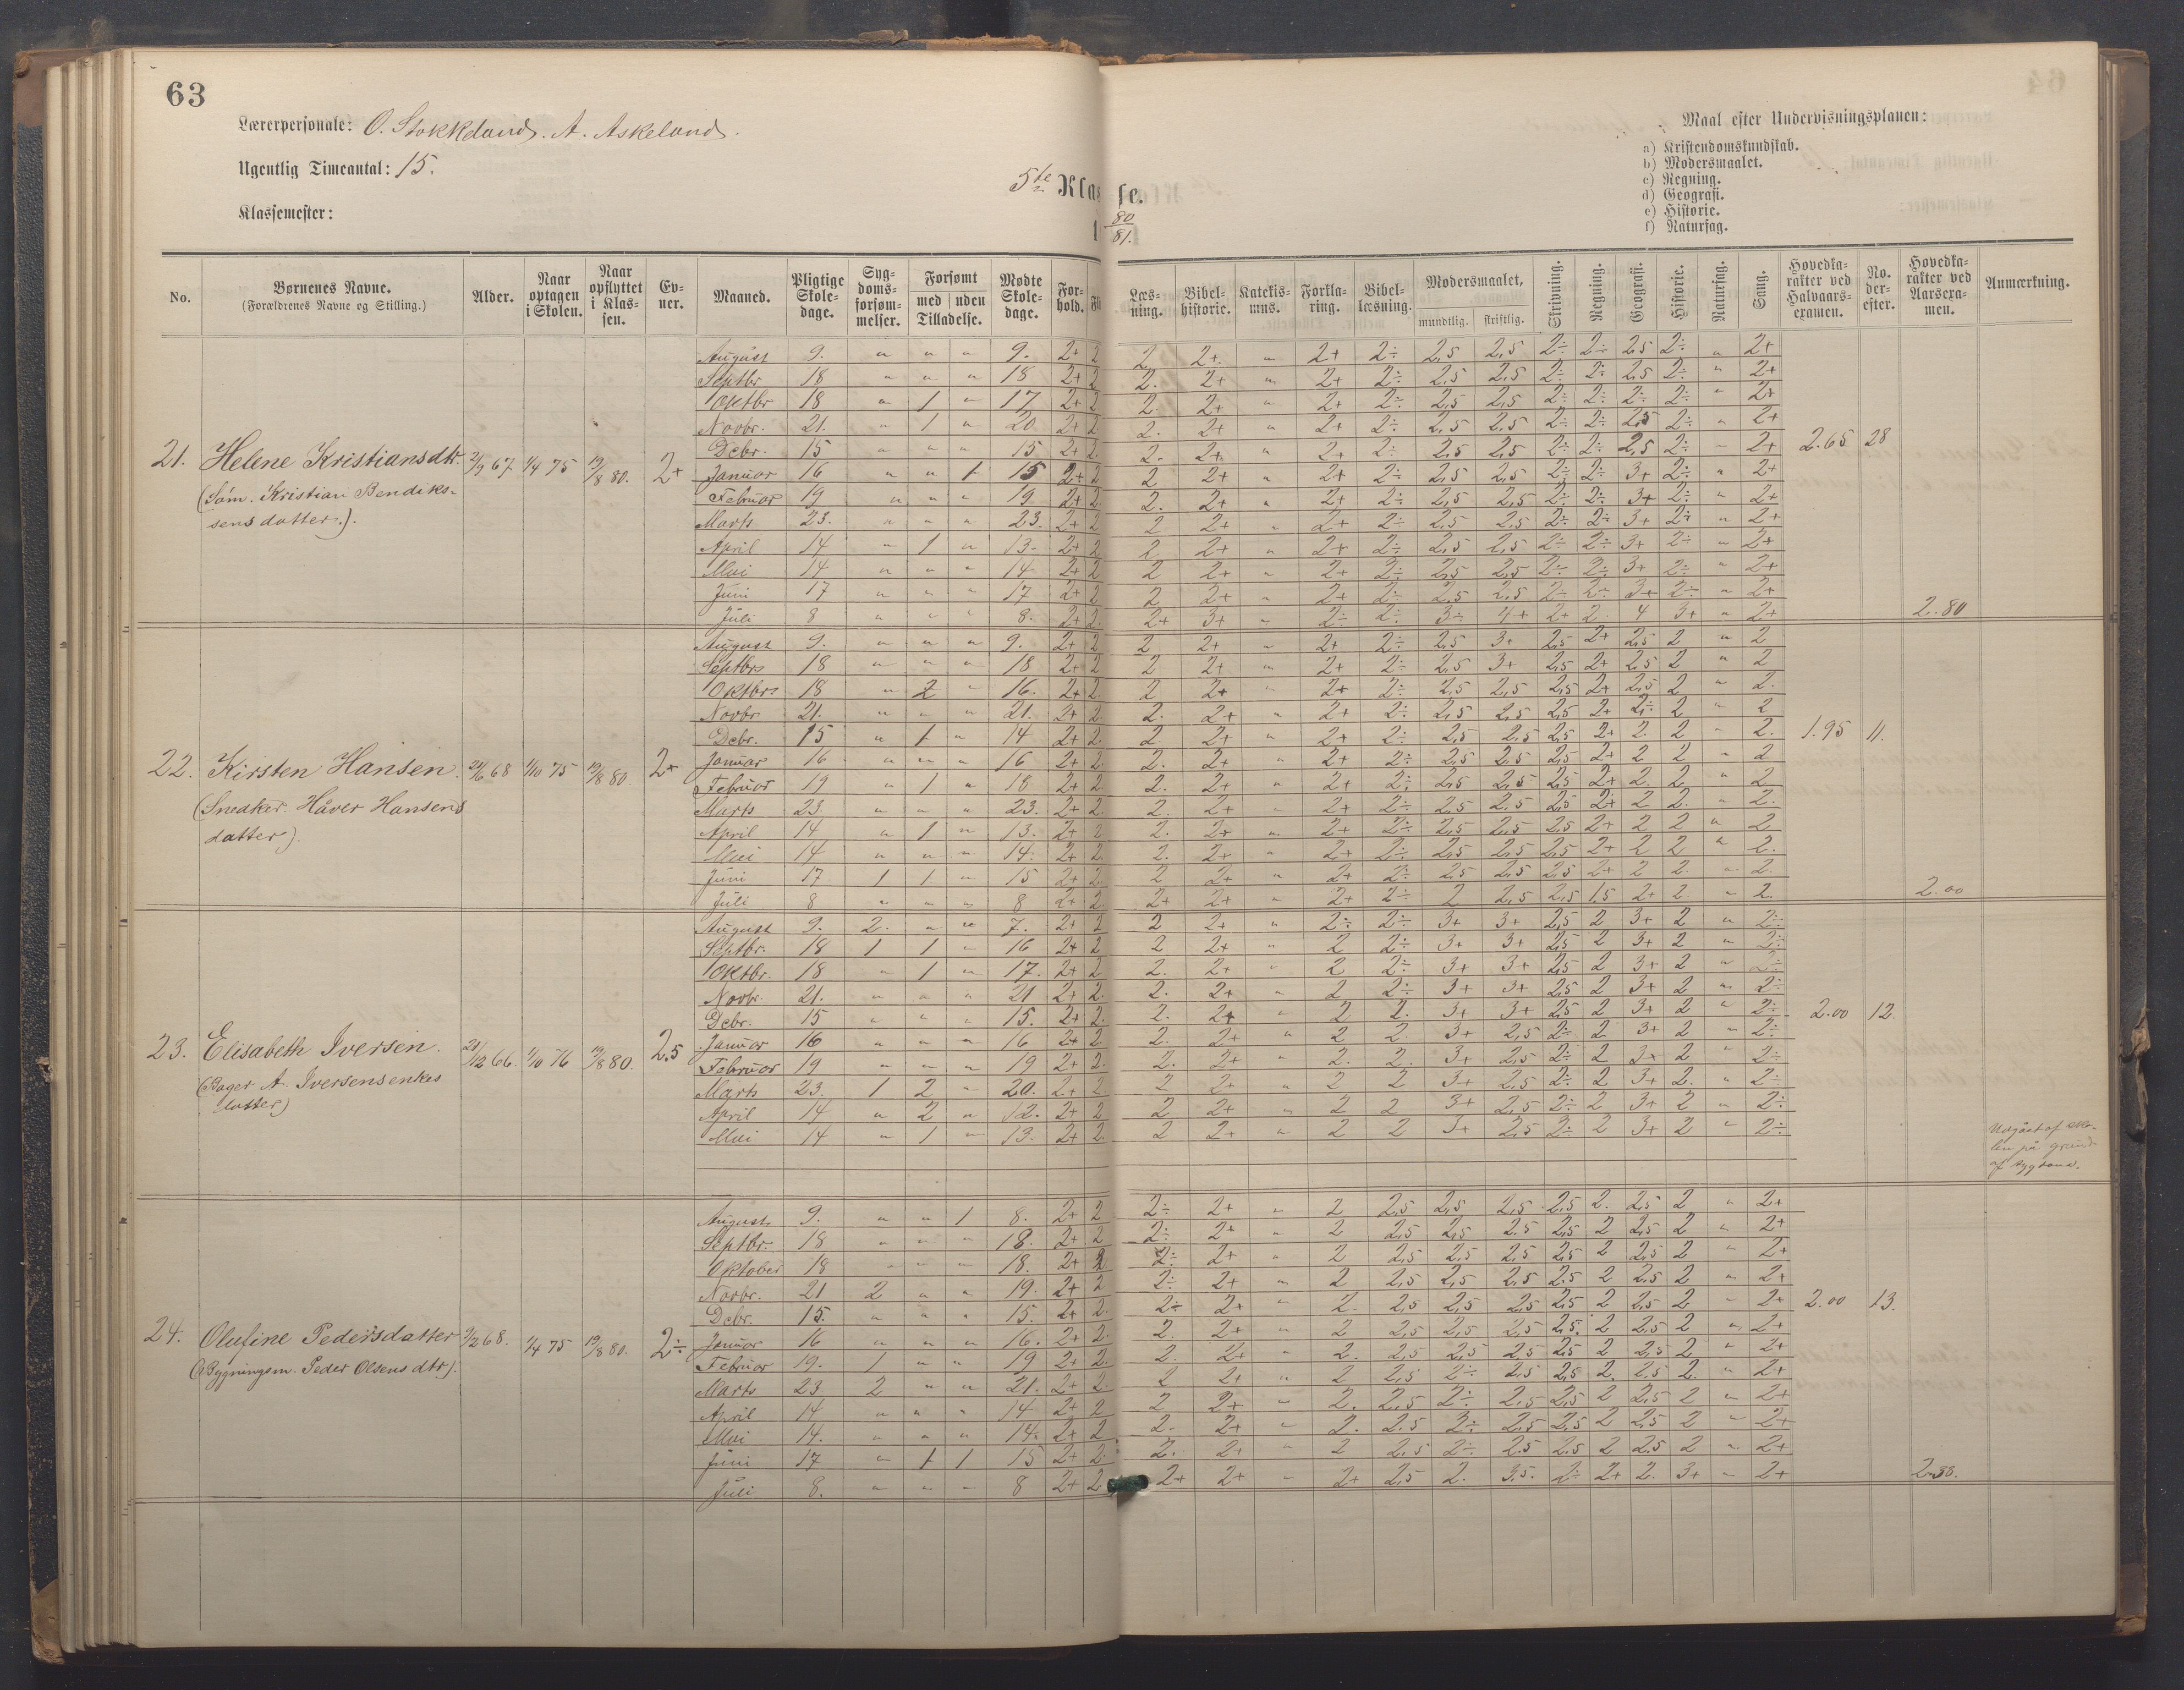 63
Lærerpersonale: O. Stokkeland. A. Askeland.
Ugentlig Timeantal: 15.
Klassemester:
5te Klasse.
80
81.
Maal efter Undervisningsplanen:
a) Kristendomskundskab.
b) Modersmaalet.
c) Regning.
d) Geografi.
e) Historie.
f) Naturfag.
No. Børnenes Navne. (Forældrenes Navne og Stilling.) Alder. Naar optagen i Skolen. Naar opflyttet i Klassen. Evner. Maaned. Pligtige Skoledage. Sygdomsforsømmelser. Forsømt med uden Tilladelse. Mødte Skoledage. Forhold. Læsning. Bibelhistorie. Katekismus. Forklaring. Bibellæsning. Modersmaalet, mundtlig. skriftlig. Skrivning. Regning. Geografi. Historie. Naturfag. Sang. Hovedkarakter ved Halvaarsexamen. No. derefter. Hovedkarakter ved Aarsexamen. Anmærkning.
21. Helene Kristiansdtr. 2/9 67. 1/4 75 19/8 80. 2+
(Søm. Kristian Bendiks-
sens datter.).
August 9. " " " 9. 2+ 2 2 2+ " 2+ 2÷ 2,5 2,5 2÷ 2÷ 2,5 2÷ " 2+
Septbr 18 " " " 18 2+ 2 2. 2+ " 2+ 2÷ 2,5 2,5 2÷ 2÷ 2,5 2÷ " 2+
Oktbr 18 " 1 " 17 2+ 2 2. 2+ " 2+ 2÷ 2,5 2,5 2÷ 2÷ 2÷ 2÷ " 2+
Novbr. 21. " 1 " 20 2+ 2 2. 2+ " 2+ 2÷ 2,5 2,5 2÷ 2÷ 2,5 2÷ " 2+
Debr. 15 " " " 15 2+ 2. 2. 2+ " 2+ 2÷ 2,5 2,5 2÷ 2÷ 2,5 2÷ " 2+ 2.65 28
Januar 16 " " 1 15 2+ 2 2 2+ " 2+ 2÷ 2,5 2,5 2÷ 2÷ 3+ 2÷ " 2+
Februar 19 " " " 19 2+ 2. 2. 2+ " 2+ 2÷ 2,5 2,5 2÷ 2÷ 3+ 2÷ " 2+
Marts 23. " " " 23. 2+ 2 2 2+ " 2+ 2÷ 2,5 2,5 2÷ 2÷ 3+ 2÷ " 2+
April 14 " 1 " 13. 2+ 2 2 2+ " 2+ 2÷ 2,5 2,5 2÷ 2÷ 3+ 2÷ " 2+
Mai 14 " " " 14 2+ 2 2 2+ " 2+ 2÷ 2,5 2,5 2÷ 2÷ 3+ 2÷ " 2+
Juni 17 " " " 17 2+ 2 2 2+ " 2+ 2÷ 2,5 2,5 2÷ 2÷ 3+ 2÷ " 2+
Juli 8 " " " 8. 2+ 2. 2+ 3+ " 2÷ 2÷ 3÷ 4+ 2+ 2 4 3+ " 2+ 2.80
22. Kirsten Hansen. 24/6 68 1/10 75 19/8 80. 2+
(Snedker. Håver Hansens
datter).
August 9. " " " 9. 2+ 2 2 2+ " 2+ 2÷ 2,5 3+ 2,5 2+ 2,5 2 " 2
Septbr 18 " " " 18 2+ 2 2 2+ " 2+ 2÷ 2,5 3+ 2,5 2+ 2,5 2 " 2
Oktbr 18 " 2 " 16. 2+ 2. 2 2+ " 2+ 2÷ 2,5 2,5 2,5 2+ 2,5 2 " 2.
Novbr 21. " " " 21. 2+ 2. 2. 2+ " 2+ 2÷ 2,5 2,5 2,5 2+ 2÷ 2 " 2
Debr. 15 " 1 " 14 2+ 2. 2 2+ " 2+ 2÷ 2,5 2,5 2,5 2+ 2 2 " 2. 1.95 11.
Januar 16 " " " 16 2+ 2. 2. 2+ " 2+ 2÷ 2,5 2,5 2,5 2+ 2 2 " 2
Februar 19 " 1 " 18 2+ 2 2. 2+ " 2+ 2÷ 2,5 2,5 2,5 2+ 2. 2 " 2
Marts 23 " " " 23. 2+ 2. 2. 2+ " 2+ 2÷ 2,5 2,5 2,5 2+ 2 2. " 2.
April 14 " 1 " 13. 2+ 2 2. 2+ " 2+ 2÷ 2,5 2,5 2,5 2+ 2 2 " 2
Mai 14 " " " 14. 2+ 2. 2. 2+ " 2+ 2÷ 2,5 2,5 2,5 2+ 2 2 " 2.
Juni 17 1 1 " 15 2+ 2. 2 2+ " 2+ 2÷ 2,5 2,5 2,5 2+ 2 2. " 2.
Juli 8 " " " 8 2+ 2. 2+ 2+ " 2+ 2÷ 2 2,5 2,5 1.5 2+ 2 " 2. 2.00
23. Elisabeth Iversen. 21/12 66. 1/10 76 19/8 80. 2,5
(Bager A. Iversens enkes
datter)
August 9. 2. " " 7. 2+ 2 2 2+ " 2÷ 2÷ 3+ 3+ 2,5 2 3+ 2 " 2÷
Septbr. 18 1 1 " 16 2+ 2 2 2+ " 2 2÷ 3+ 3+ 2,5 2 3+ 2 " 2÷
Oktbr. 18 " 1 " 17. 2+ 2 2. 2+ " 2 2÷ 3+ 3+ 2,5 2 3+ 2 " 2÷
Novbr. 21. " " " 21 2+ 2. 2. 2+ " 2 2÷ 3+ 3+ 2,5 2 3+ 2 " 2÷
Debr. 15 " " " 15. 2+ 2. 2. 2+ " 2 2. 3+ 3+ 2,5 2 3+ 2 " 2÷ 2.00 12.
Januar 16 " " " 16 2+ 2 2. 2+ " 2 2. 3+ 2,5 2÷ 2 3+ 2 " 2÷
Februar 19 " " " 19 2+ 2. 2. 2+ " 2. 2. 3+ 2,5 2÷ 2 3+ 2 " 2÷
Marts 23. 1 2 " 20. 2+ 2 2 2+ " 2 2 3+ 2,5 2÷ 2 3+ 2. " 2÷
April 14 " 2 " 12. 2+ 2 2 2+ " 2 2 3+ 2,5 2÷ 2 3+ 2 " 2÷
Mai 14 " 1 " 13. 2+ 2. 2 2+ " 2 2 3+ 2,5 2÷ 2 3+ 2 " 2÷
Udgåat af sko-
len på grund
af sygdom.
24. Olufine Pedersdatter 9/2 68. 1/4 75 19/8 80. 2÷
(Bygningsm. Peder Olsens dtr).
August 9. " " 1 8. 2+ 2 2÷ 2+ " 2 2,5 2,5 2,5 2,5 2. 2,5 2 " 2+
Septbr. 18 " " " 18. 2+ 2 2÷ 2+ " 2 2,5 2,5 2,5 2,5 2 2,5 2 " 2+
Oktober 18 " " " 18. 2+ 2. 2÷ 2+ " 2 2,5 2,5 2,5 2,5 2 2,5 2 " 2+
Novbr. 21 2 " " 19. 2+ 2 2÷ 2+ " 2 2,5 2,5 2,5 2,5 2 2,5 2 " 2+
Debr. 15. " " " 15. 2+ 2. 2÷ 2+ " 2. 2,5 2,5 2,5 2,5 2 2,5 2 " 2+ 2.00 13.
Januar 16 " " " 16. 2+ 2. 2. 2+ " 2 2,5 2,5 2,5 2,5 2 2,5 2 " 2+
Februar 19. 1 " " 19 2+ 2. 2. 2+ " 2. 2,5 2,5 2,5 2,5 2 2,5 2 " 2+
Marts 23. 2 " " 21. 2+ 2. 2 2+ " 2 2,5 2÷ 2,5 2,5 2. 2,5 2. " 2+
April 14 " " " 14 2+ 2 2 2+ " 2. 2,5 2÷ 2,5 2,5 2 2,5 2 " 2+
Mai 14. " " " 14. 2+ 2 2. 2+ " 2. 2.5 2÷ 2,5 2,5 2 2,5 2 " 2+
Juni 17 " 1 1 15 2+ 2. 2. 2+ " 2 2,5 2÷ 2,5 2,5 2 2,5 2 " 2+
Juli 8. " " " 8 2+ 2. 2+ 2+ " 2+ 2,5 2. 3,5. 2÷ 2+ 2. 3+ " 2+ 2.38.